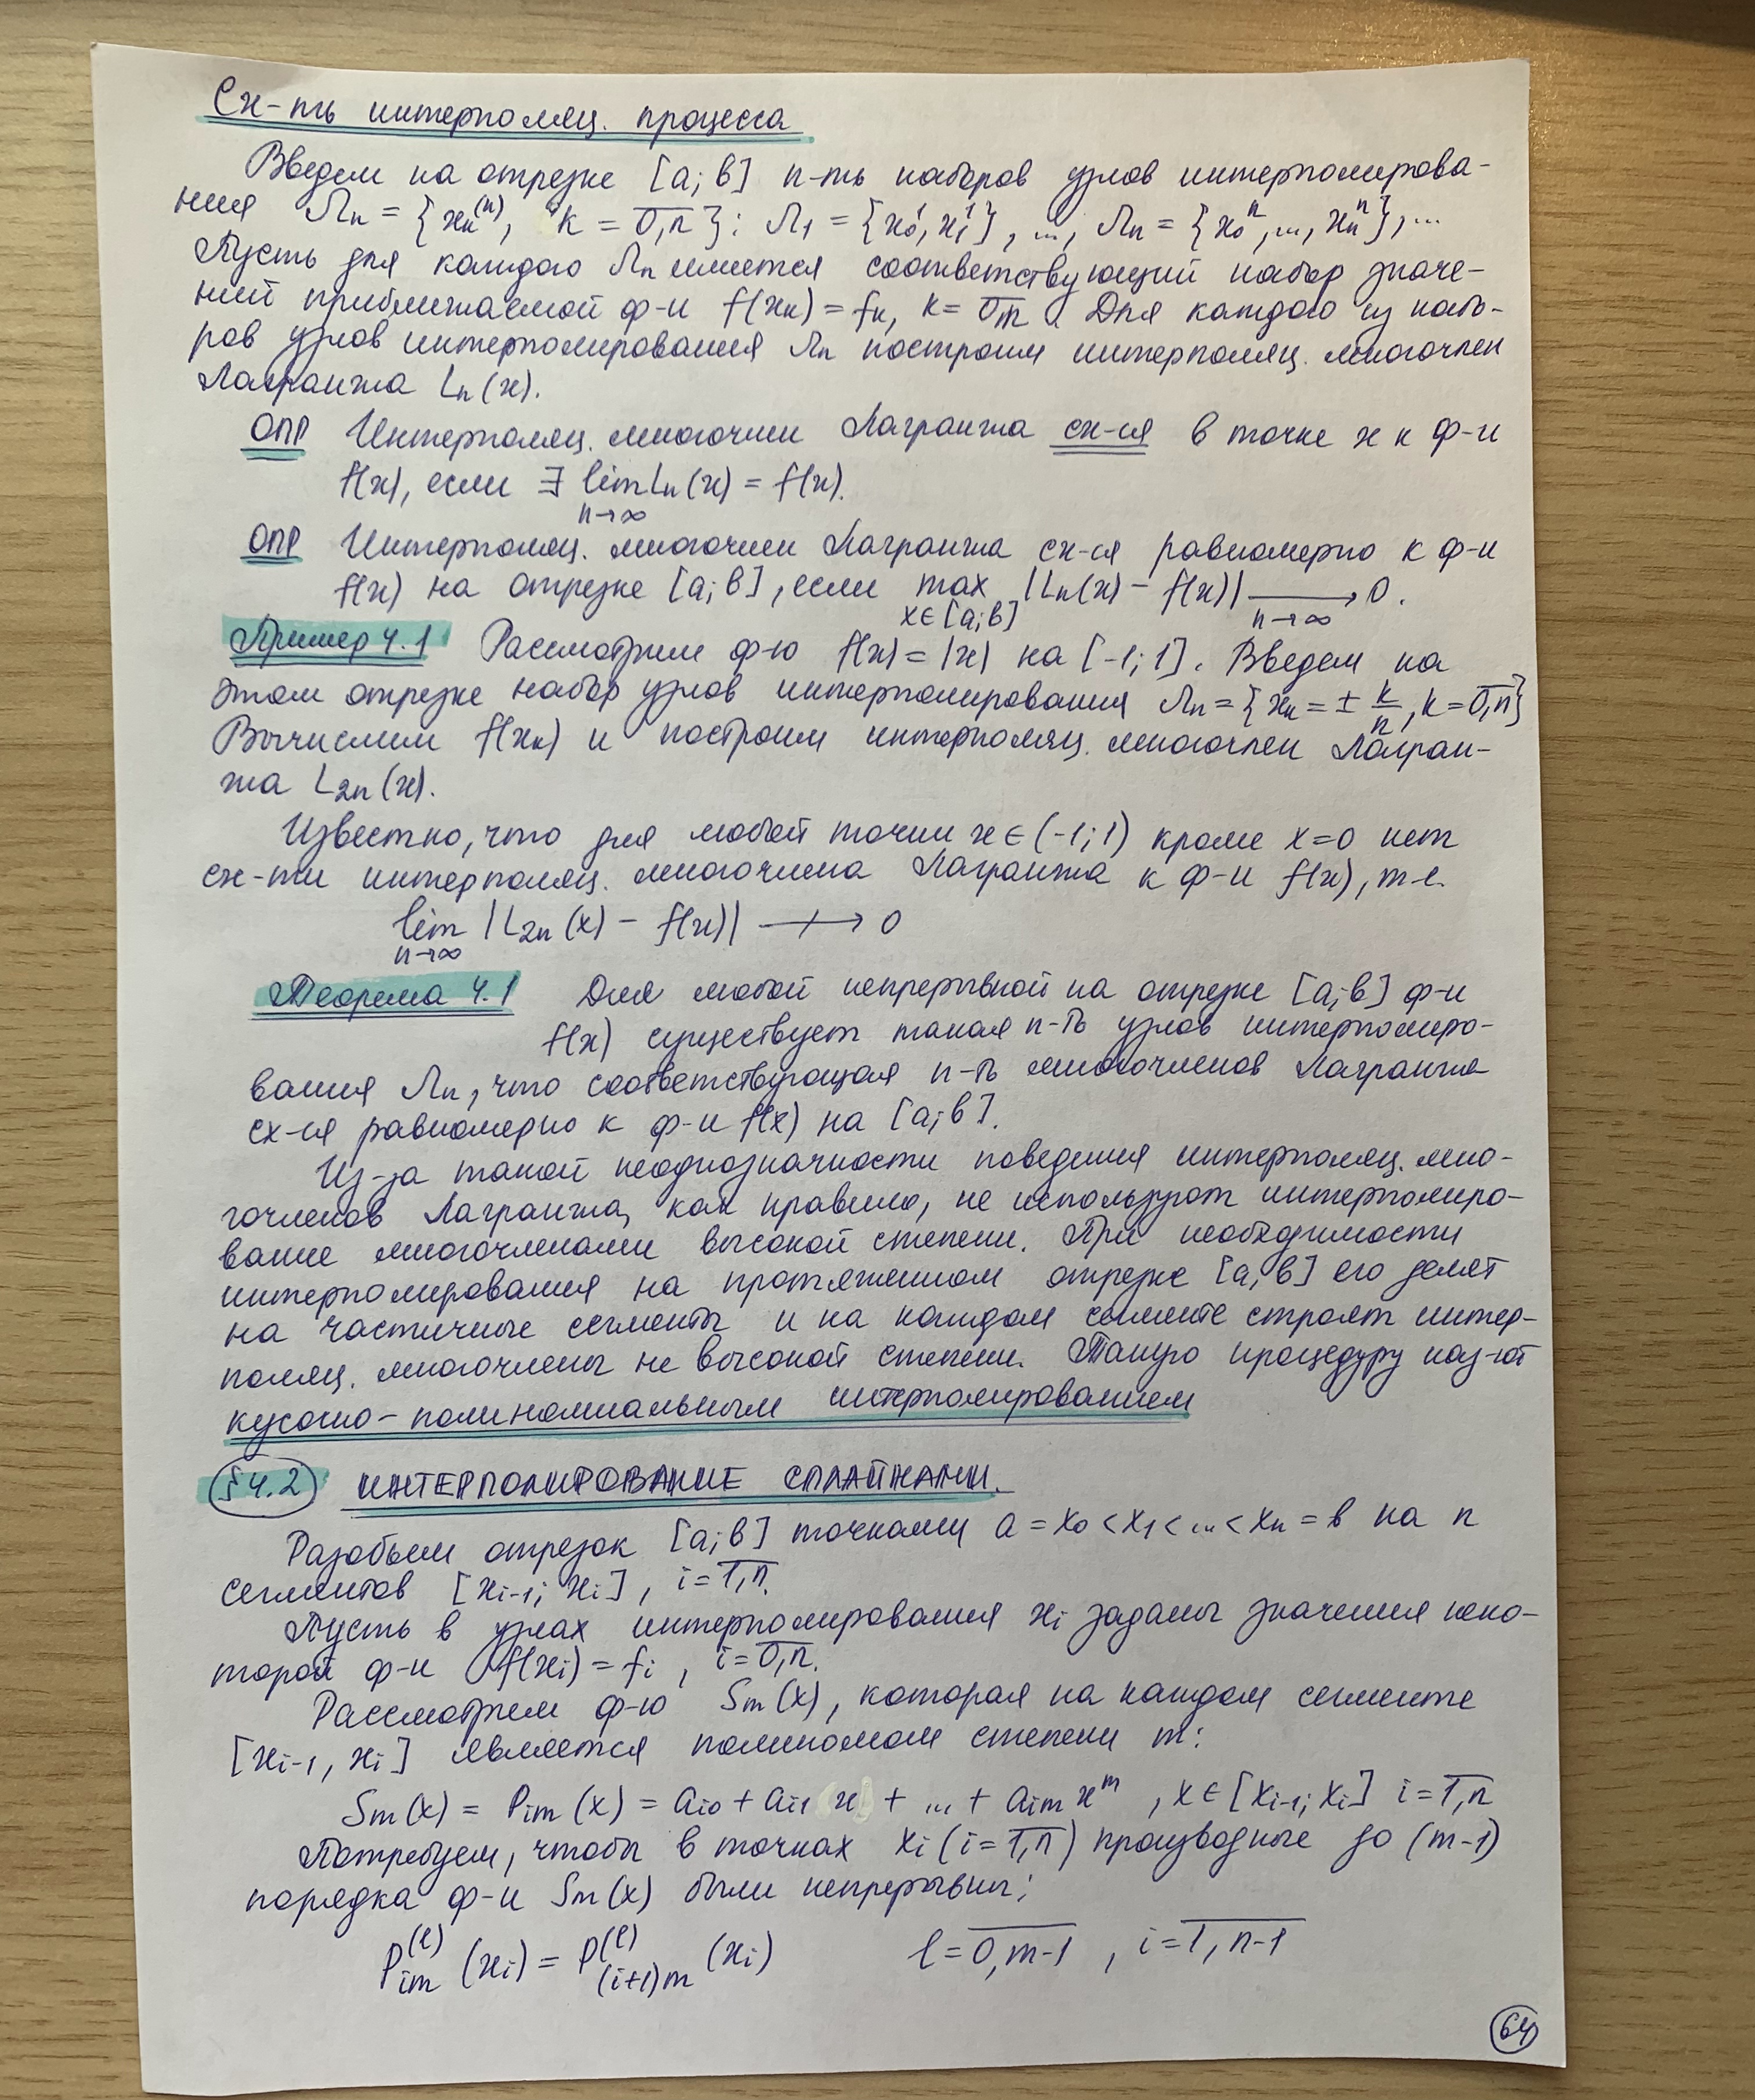 Сх-ть интерполяц. процесса
Введем на отрезке [a; b] п-ть наборов узлов интерполирова-
ния Λn = {xk^(n), k = 0,n‾}: Λ1 = {x0^1, x1^1}, ..., Λn = {x0^n, ..., xn^n}, ...
Пусть для каждого Λn имеется соответствующий набор значе-
ний приближаемой ф-и f(xk) = fk, k = 0,n‾. Для каждого из набо-
ров узлов интерполирования Λn построим интерполяц. многочлен
Лагранжа Ln(x).
ОПР Интерполяц. многочлен Лагранжа сх-ся в точке x к ф-и
f(x), если ∃ lim Ln(x) = f(x).
n→∞
ОПР Интерполяц. многочлен Лагранжа сх-ся равномерно к ф-и
f(x) на отрезке [a; b], если max |Ln(x) - f(x)| ⟶ 0.
x∈[a;b] n→∞
Пример 4.1 Рассмотрим ф-ю f(x) = |x| на [-1; 1]. Введем на
этом отрезке набор узлов интерполирования Λn = {xk = ± k/n, k = 0,n‾}
Вычислим f(xk) и построим интерполяц. многочлен Лагран-
жа L2n(x).
Известно, что для любой точки x ∈ (-1; 1) кроме x=0 нет
сх-ти интерполяц. многочлена Лагранжа к ф-и f(x), т-е.
lim |L2n(x) - f(x)| ↛ 0
n→∞
Теорема 4.1 Для любой непрерывной на отрезке [a; b] ф-и
f(x) существует такая п-ть узлов интерполиро-
вания Λn, что соответствующая п-ть многочленов Лагранжа
сх-ся равномерно к ф-и f(x) на [a; b].
Из-за такой неоднозначности поведения интерполяц. мно-
гочленов Лагранжа, как правило, не используют интерполиро-
вание многочленами высокой степени. При необходимости
интерполирования на протяженном отрезке [a, b] его делят
на частичные сегменты и на каждом сегменте строят интер-
поляц. многочлены не высокой степени. Такую процедуру наз-ют
кусочно-полиномиальным интерполированием
§ 4.2 ИНТЕРПОЛИРОВАНИЕ СПЛАЙНАМИ.
Разобьем отрезок [a; b] точками a = x0 < x1 < ... < xn = b на n
сегментов [xi-1; xi], i = 1,n‾.
Пусть в узлах интерполирования xi заданы значения неко-
торой ф-и f(xi) = fi, i = 0,n‾.
Рассмотрим ф-ю Sm(x), которая на каждом сегменте
[xi-1, xi] является полиномом степени m:
Sm(x) = Pim(x) = ai0 + ai1 x + ... + aim x^m, x ∈ [xi-1; xi] i = 1,n‾
Потребуем, чтобы в точках xi (i = 1,n‾) производные до (m-1)
порядка ф-и Sm(x) были непрерывны:
P^(l)im (xi) = P^(l)(i+1)m (xi) l = 0,m-1‾, i = 1,n-1‾
64